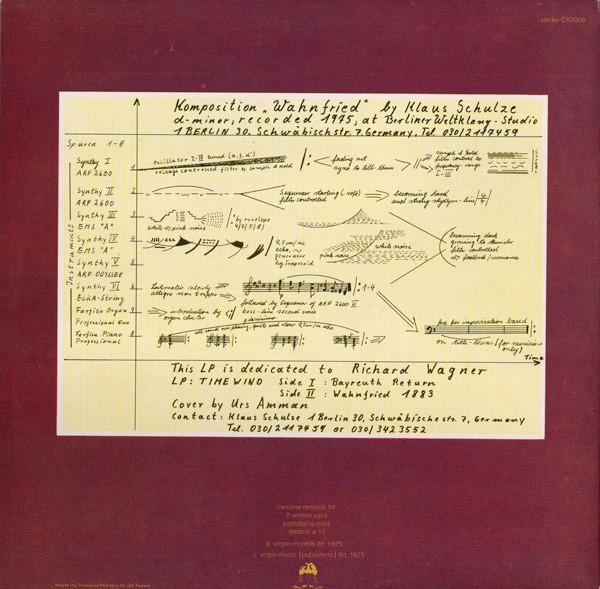 stereo CA2006
Komposition „Wahnfried" by Klaus Schulze
d-minor, recorded 1975, at Berliner Weltklang-Studio
1 BERLIN 30, Schwäbischstr. 7. Germany, Tel. 030/2117459
Spuren 1-8
Instruments
Synthy I
ARP 2600
Synthy II
ARP 2600
Synthy III
EMS "A"
Synthy IV
EMS "A"
Synthy V
ARP ODYSEE
Synthy VI
Elka-String
Farfisa Organ
Professional Duo
Farfisa Piano
Professional
1
2
3
4
5
6
8
Oscillator I-III tuned (a, f, d)
voltage controlled filter by Sample & Hold
fading out
sync to title-thema
sample & Hold
filter control to
frequency range
I-III
Sequenzer starting (soft)
filter controlled
becoming hard
and strong rhythm-line
4/4
white & pink noise
by envelope
white noise
pink noise
becoming dark
growing to thunder
filter controlled
allegro non troppo
followed by Sequenzer of ARP 2600 II
bass-line second voice
1-4
introduction by
organ cluster
pianissimo
free for improvisation based
on title-thema
only)
Time
This LP is dedicated to Richard Wagner
LP: TIMEWIND Side I : Bayreuth Return
Side II : Wahnfried 1883
Cover by Urs Amman
Contact: Klaus Schulze 1 Berlin 30, Schwäbische str. 7, Germany
Tel. 030/2117459 or 030/3423552
caroline records ltd
2 vernon yard
portobello road
london w 11
p. virgin records ltd. 1975
c. virgin music (publishers) ltd. 1975